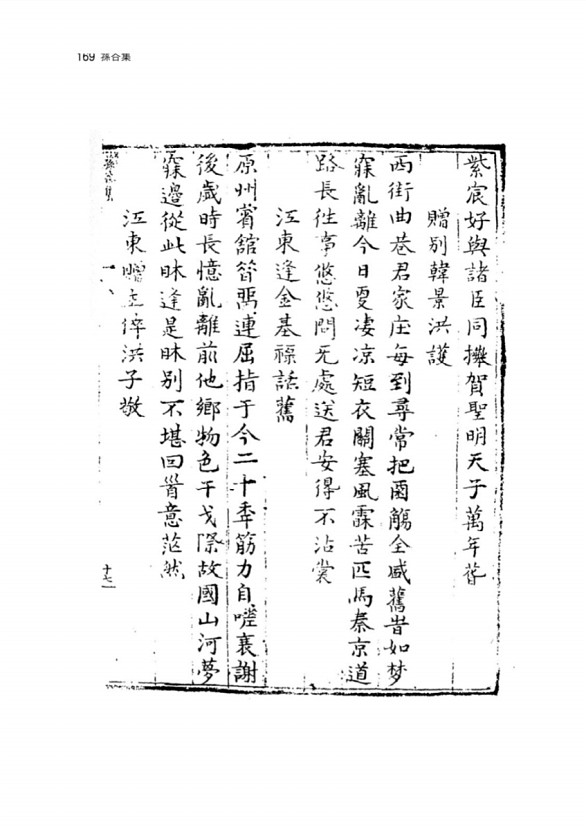 169 孫合集
紫宸好與諸臣同攢賀聖明天子萬年
贈別韓景洪護
西街曲巷君家庄每到尋常把觴全盛舊昔如梦
寐亂離今日更凄凉短衣關塞風霖苦匹馬秦京道
路長往事悠悠問无處送君安得不沾裳
江東逢金基禄話舊
原州賓舘笞連屈指于今二十秊筋力自嗟衰謝
後歲時長憶亂離前他鄉物色干戈際故國山河夢
寐邊從此昧逢是昧別不堪回首意茫然
江東贈主倅洪子敬
十七